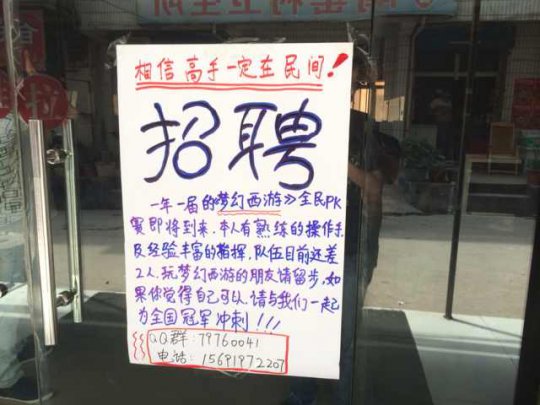 相信高手一定在民间!
招聘
一年一届的梦幻西游》全民PK
赛即将到来.本人有熟练的操作手
及经验丰富的指挥,队伍目前还差
2人.玩梦幻西游的朋友请留步,如
果你觉得自己可以.请与我们一起
为全国冠军冲刺!!!
QQ群:79760041
电话:15691972207